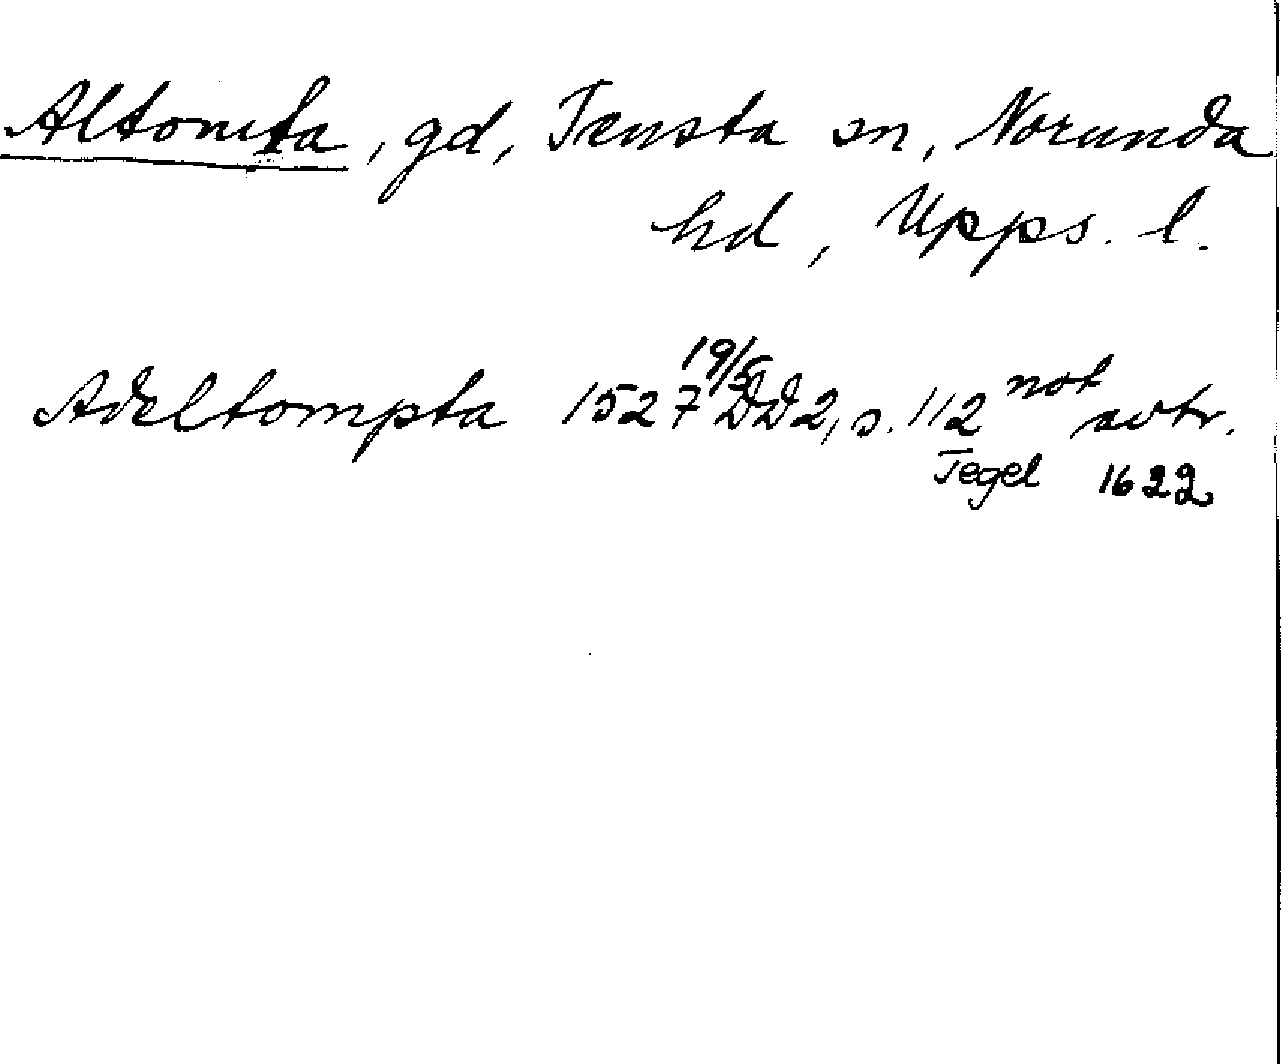 Altomta, gd, Tensta sn, Norunda
hd, Upps. l.
Adeltompta 1527 19/5 DD2, s. 112 not avtr.
Tegel 1622